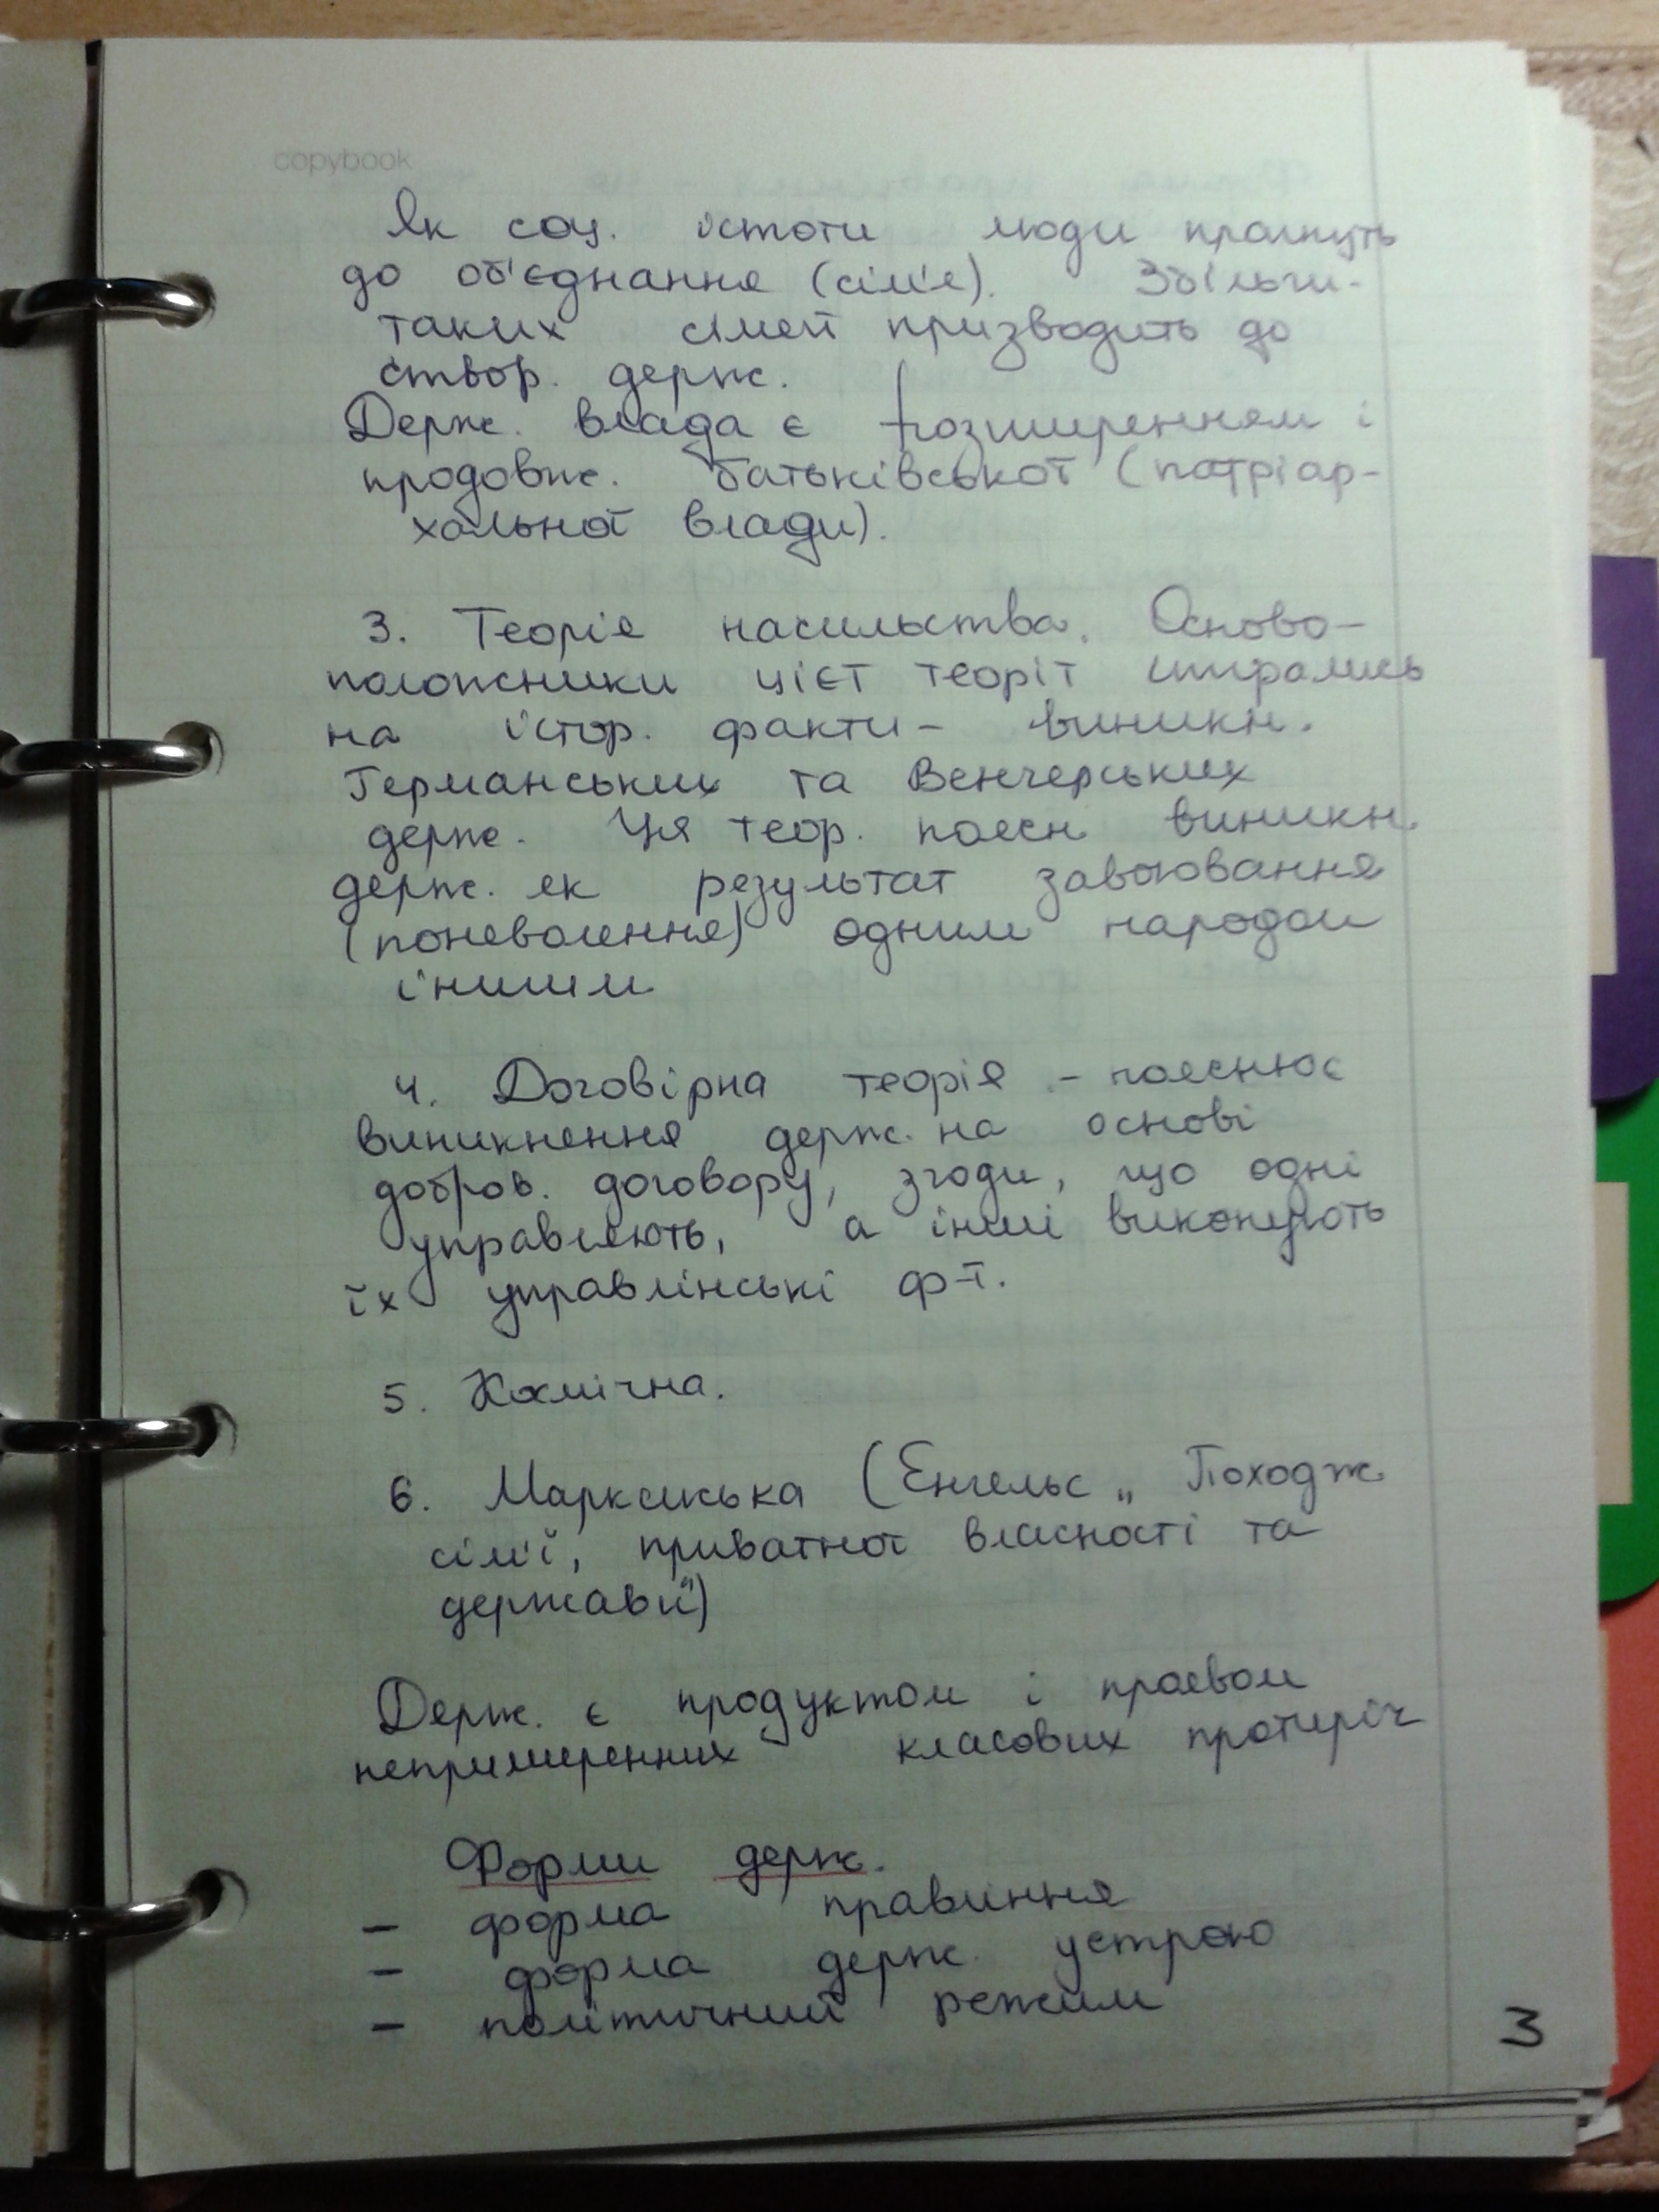 copybook
Як соц. істоти люди прагнуть
до об'єднання (сім'я). Збільш.
таких сімей призводить до
створ. держ.
Держ. влада є розширенням і
продовж. батьківської (патріар-
хальної влади).
3. Теорія насильства. Осново-
положники цієї теорії спирались
на істор. факти - виникн.
Германських та Венгерських
держ. Ця теор. поясн виникн.
держ. як результат завоювання
(поневолення) одним народом
іншим
4. Договірна теорія - пояснює
виникнення держ. на основі
добров. договору, згоди, що одні
управляють, а інші виконують
їх управлінські ф-ї.
5. Космічна.
6. Марксиська (Енгельс „Походж.
сім'ї, приватної власності та
держави")
Держ. є продуктом і проявом
неприммеренних класових протиріч
Форми держ.
- форма правління
- форма держ. устрою
- політичний режим
3